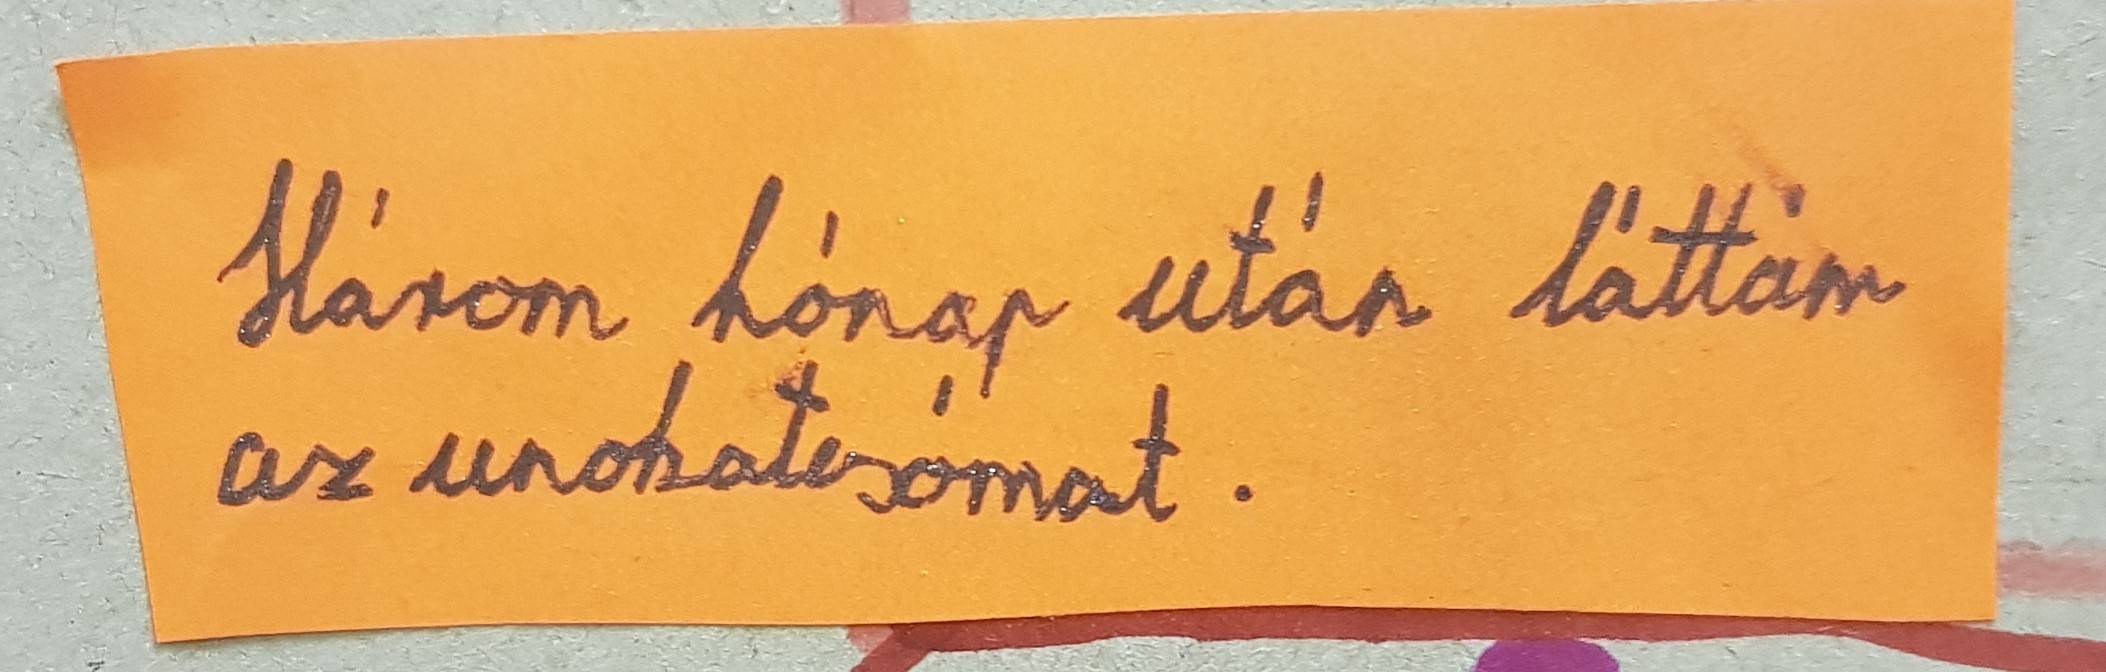 Három hónap után láttám
az unokatesómat.